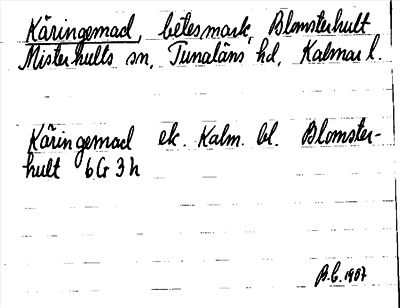 Käringemad, betesmark, Blomsterhult
Misterhults sn, Tunaläns hd, Kalmar l.
Käringemad ek. Kalm. bl. Blomster-
hult 6G 3h
B.C. 1987